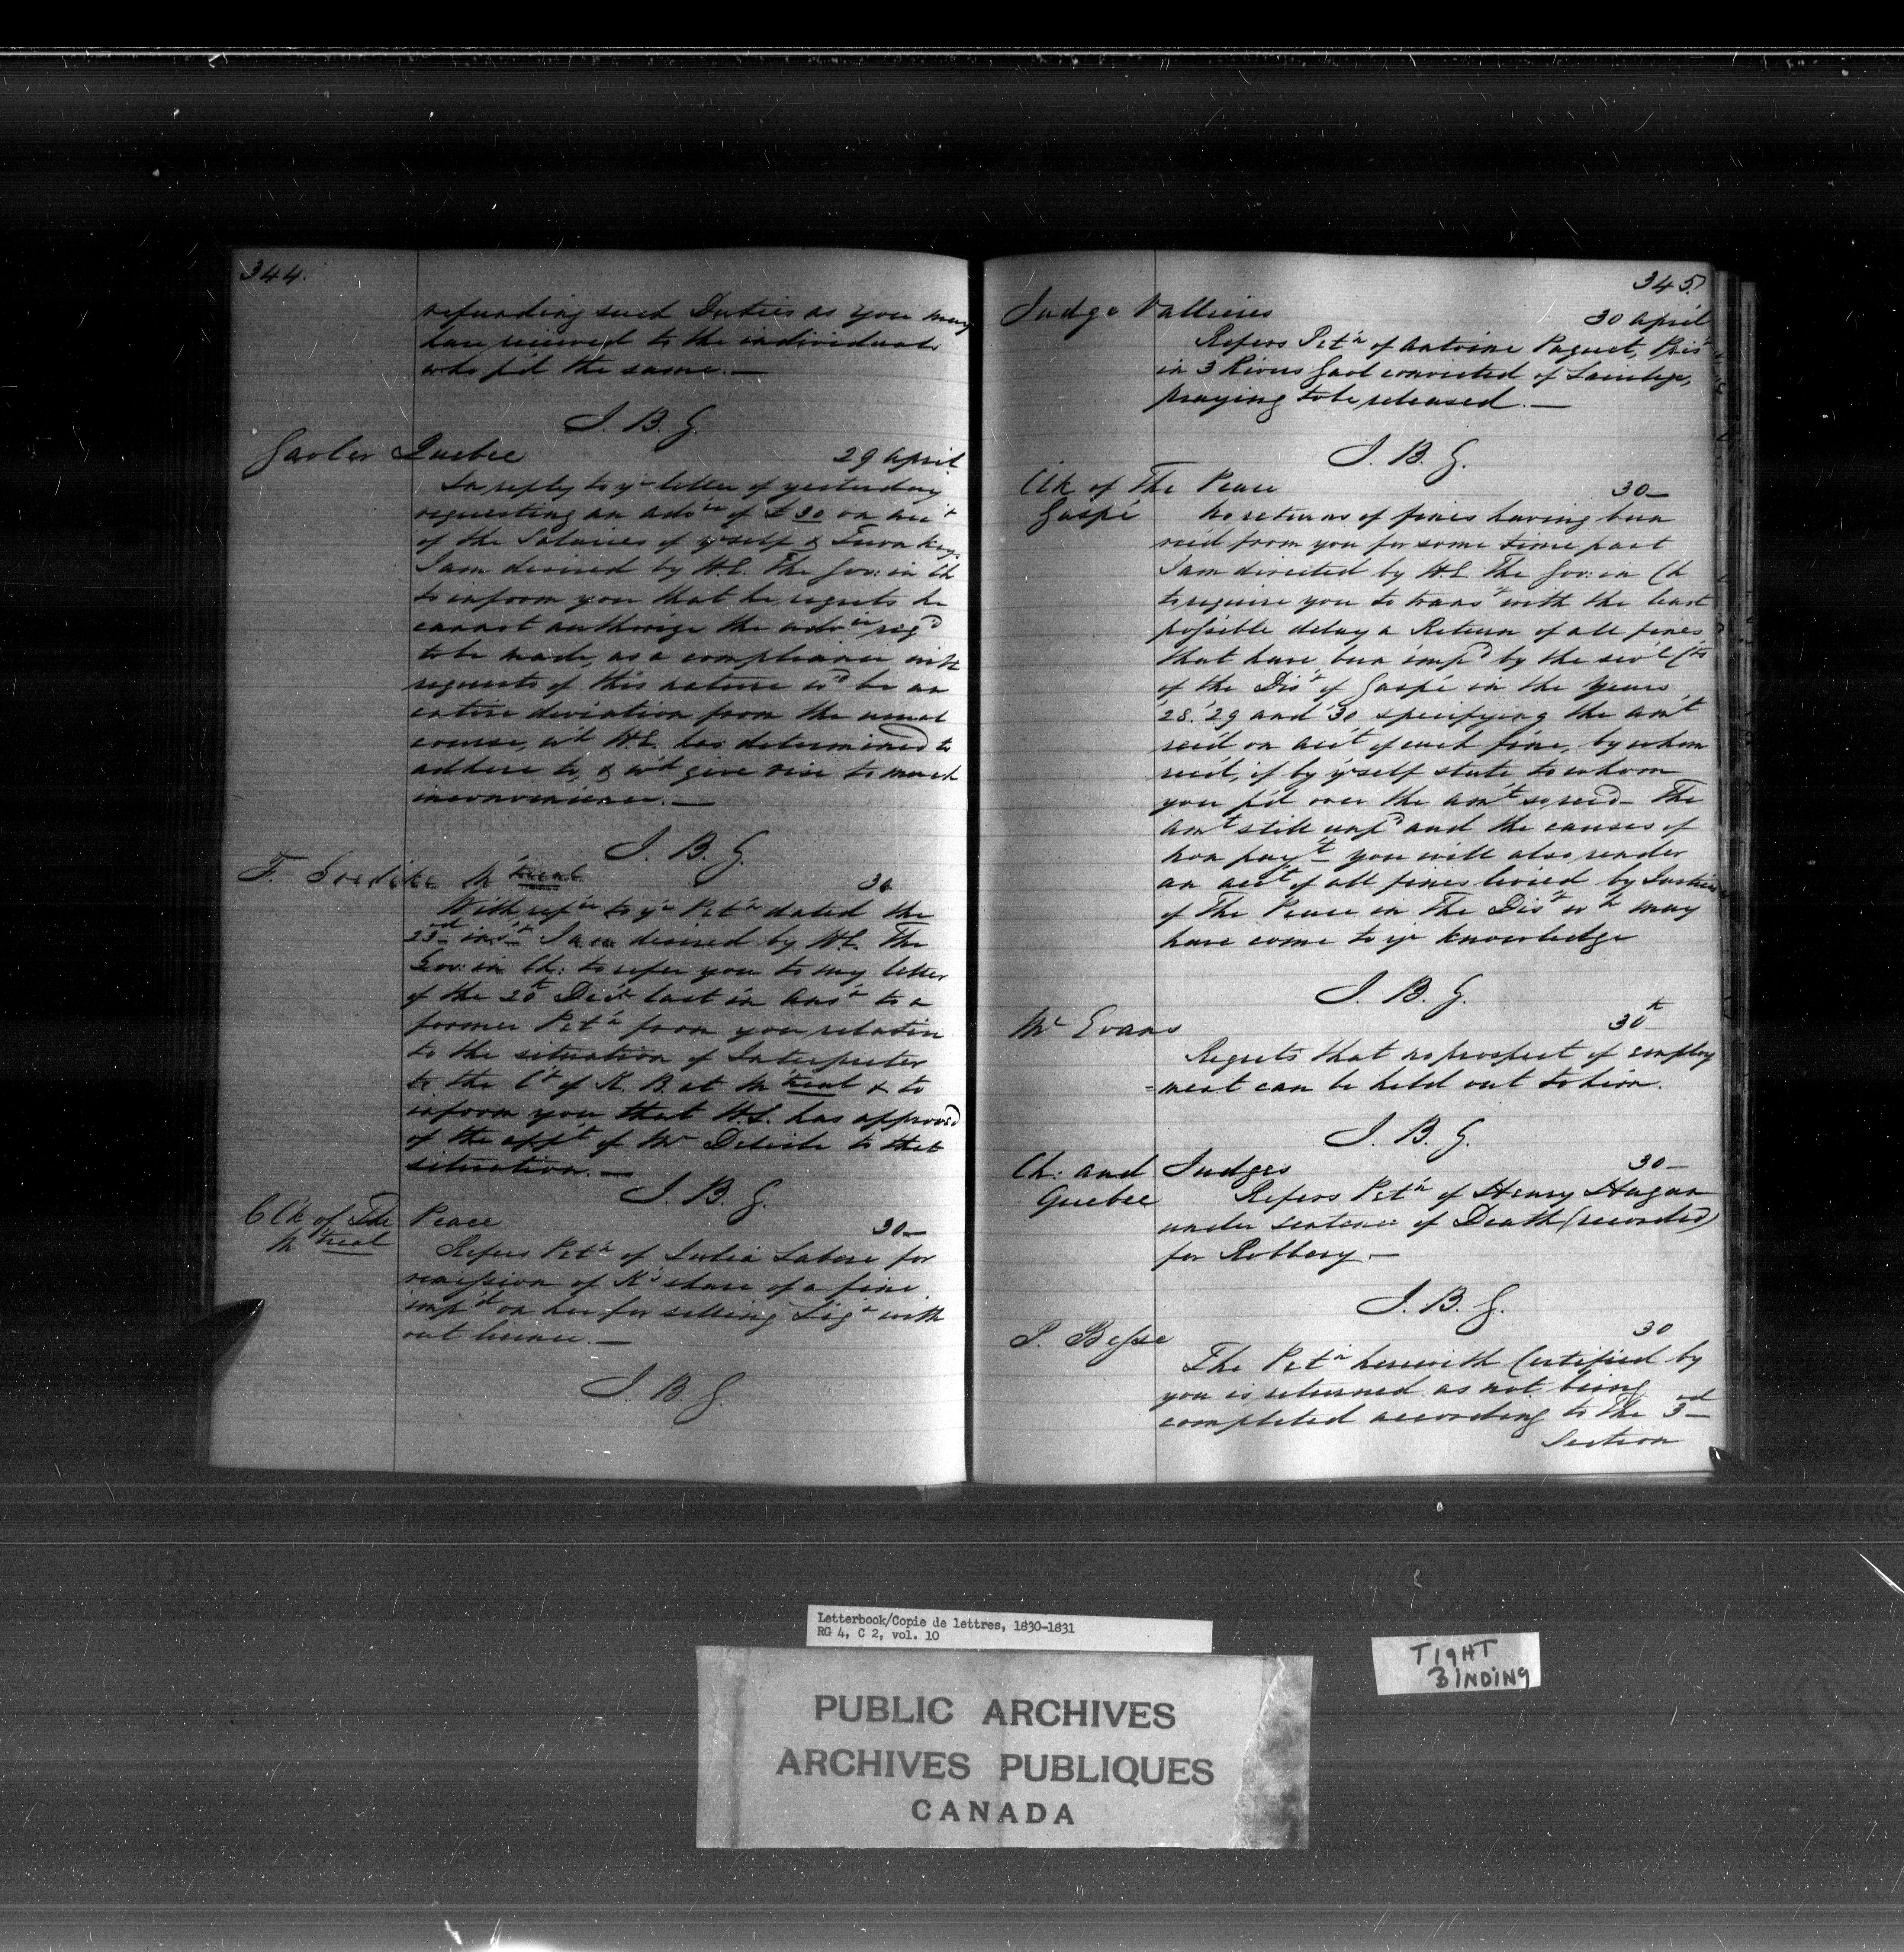 344.
refunding such Duties as you may
have received to the individuals
who p'd the same. —
J. B. G.
Gaoler Quebec 29 April
In reply to yr letter of yesterday
requesting an advce of £30 on acct
of the Salaries of yrself & Turnkey
I am desired by H.E. The Gov: in Ch
to inform you that he regrets he
cannot authorize the advce reqd
to be made, as a compliance with
requests of this nature wd be an
entire deviation from the usual
course, wh H.E. has determined to
adhere to, & wd give rise to much
inconvenience. —
J. B. G.
F. M'treal 30
With refce to yr Petn dated the
23d inst I am desired by H.E. The
Gov: in Ch: to refer you to my letter
of the 20t Decr last in ansr to a
former Petn from you relative
to the situation of Interpreter
to the Ct of K. B. at M'treal & to
inform you that H.E. has approved
of the appt of Mr Delisle to that
situation. —
J. B. G.
Clk of The Peace 30 —
M'treal
Refers Petn of Julia Labore for
remission of K's share of a fine
imp'd on her for selling Liqr with
out licence. —
J. B. G.
345.
Judge Vallieres 30 April
Refers Petn of Antoine Paquet, Prisr
in 3 Rivers Gaol convicted of Larceny,
praying to be released. —
J. B. G.
Clk of The Peace 30 —
Gaspé No returns of fines having been
recd from you for some time past
I am directed by H.E. The Gov: in Ch
to require you to transt with the least
possible delay a Return of all fines
that have been impd by the sevl Cts
of the Dist of Gaspé in the years
'28. '29 and '30 specifying the amt
rec'd on acct of each fine, by whom
rec'd, if by yrself state to whom
you p'd over the amt so, rec'd — The
amt still unpd and the causes of
non payt you will also render
an acct of all fines levied by Justices
of The Peace in The Dist wh may
have come to yr knowledge
J. B. G.
Mr Evans 30th
Regrets that no prospect of employ
=ment can be held out to him.
J. B. G.
Ch: and Judges 30 —
Quebec Refers Petn of Henry Hagan
under sentence of Death (recorded)
for Robbery —
J. B. G.
P. Besse 30
The Petn herewith Certified by
you is returned as not being
completed according to the 3rd
Section
Letterbook/Copie de lettres, 1830-1831
RG 4, C 2, vol. 10
TIGHT
BINDING
PUBLIC ARCHIVES
ARCHIVES PUBLIQUES
CANADA